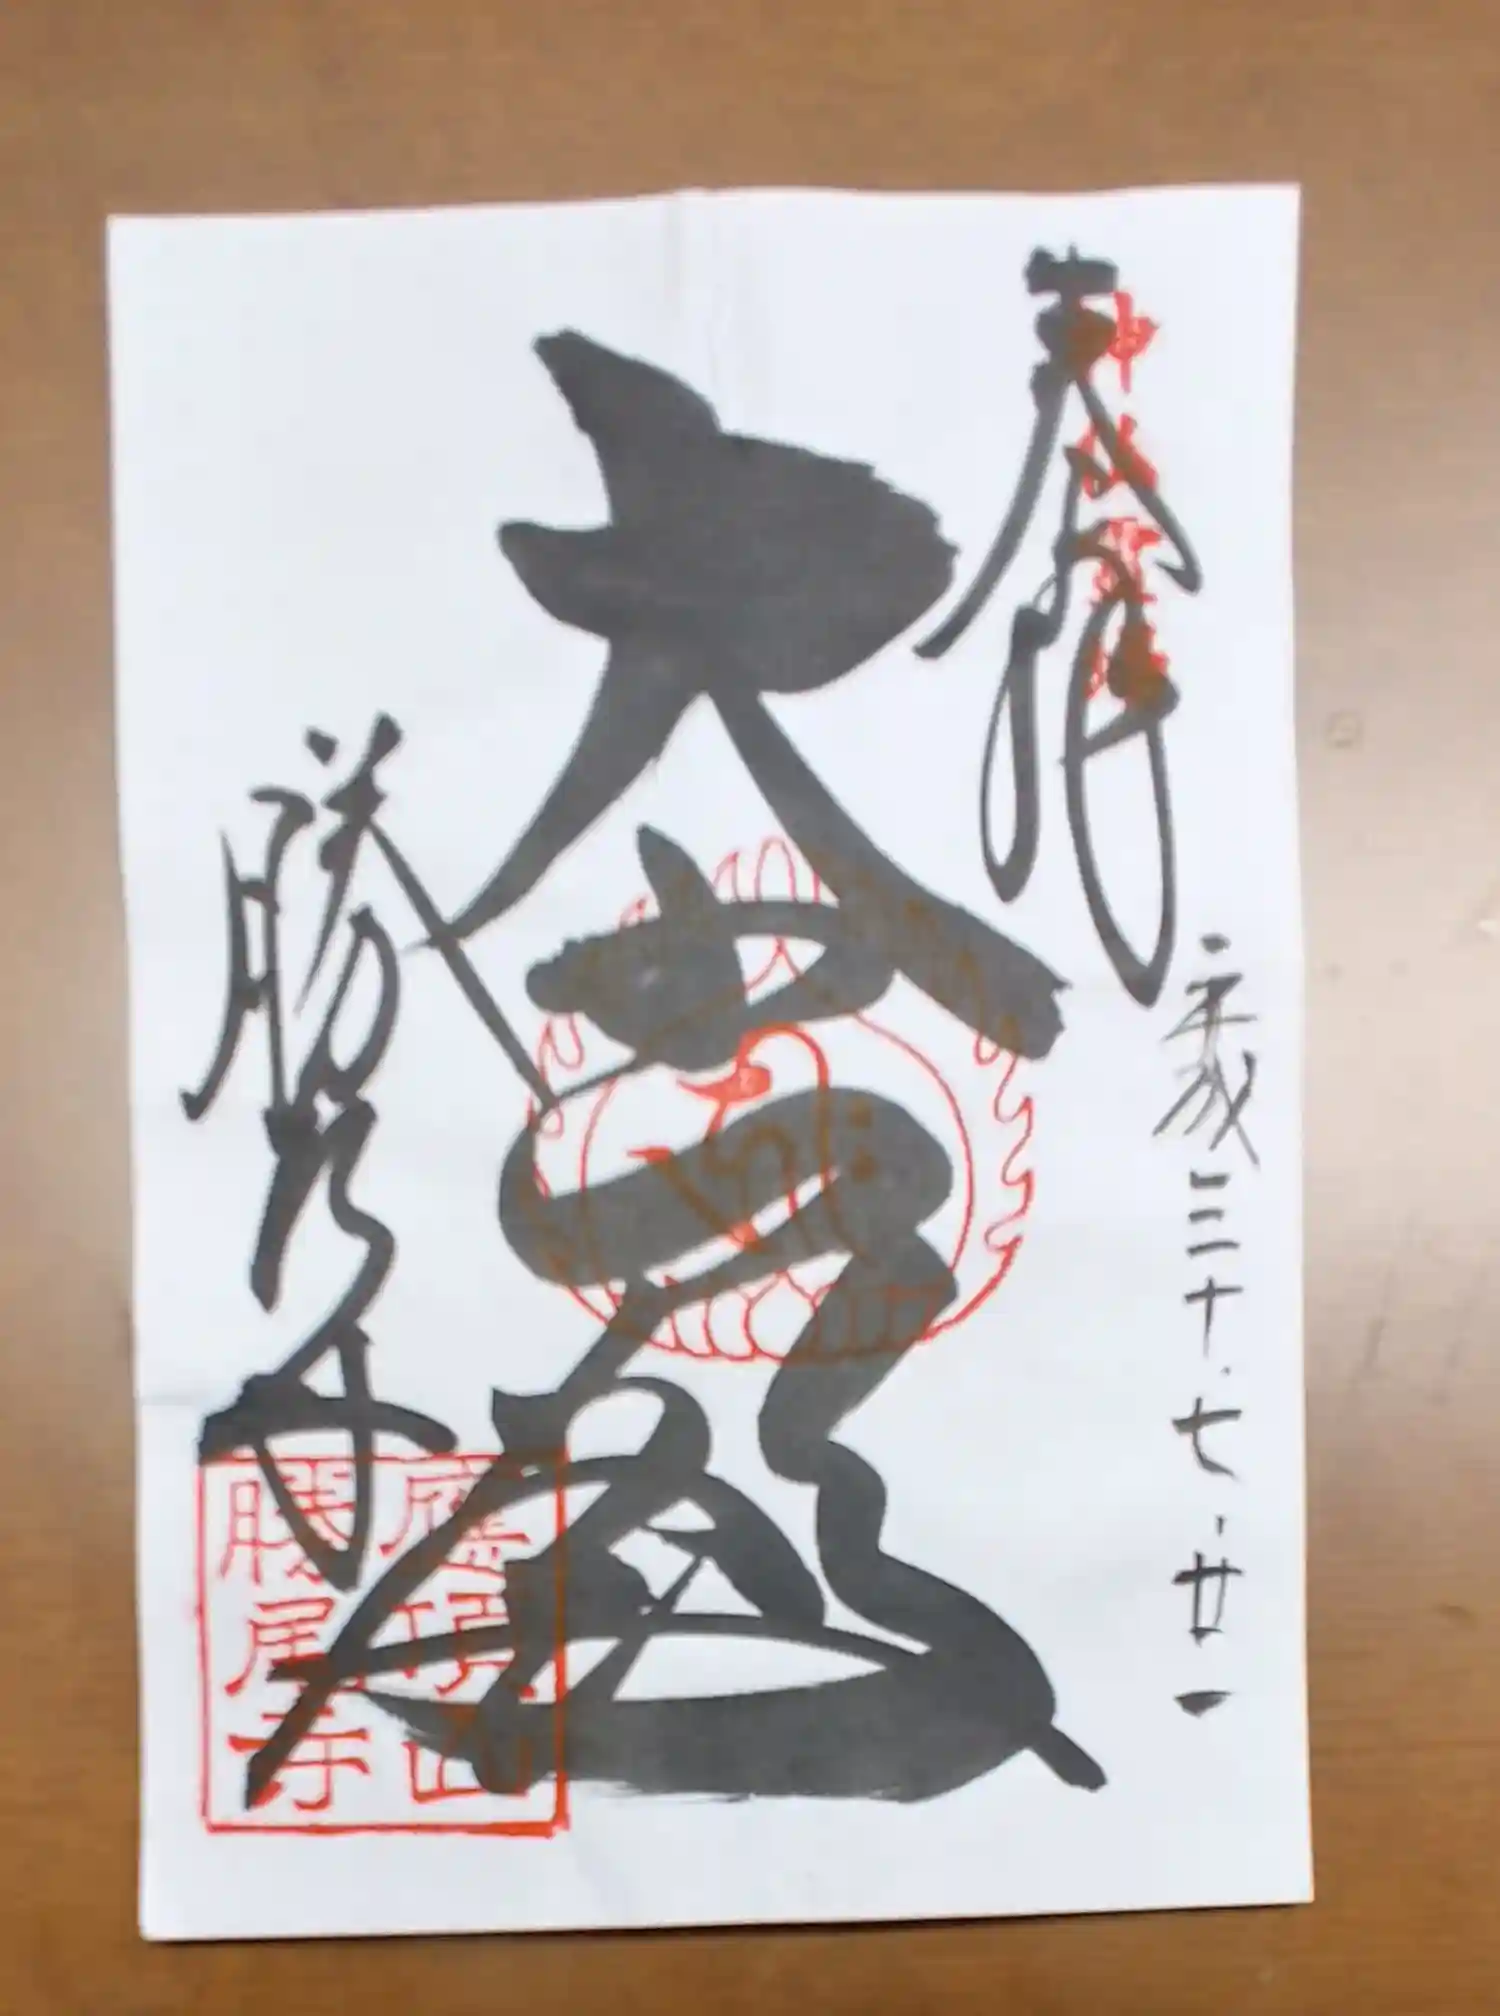 奉拝
神仏霊場
平成三十.七.廿一
大
勝尾寺
應頂山
勝尾寺